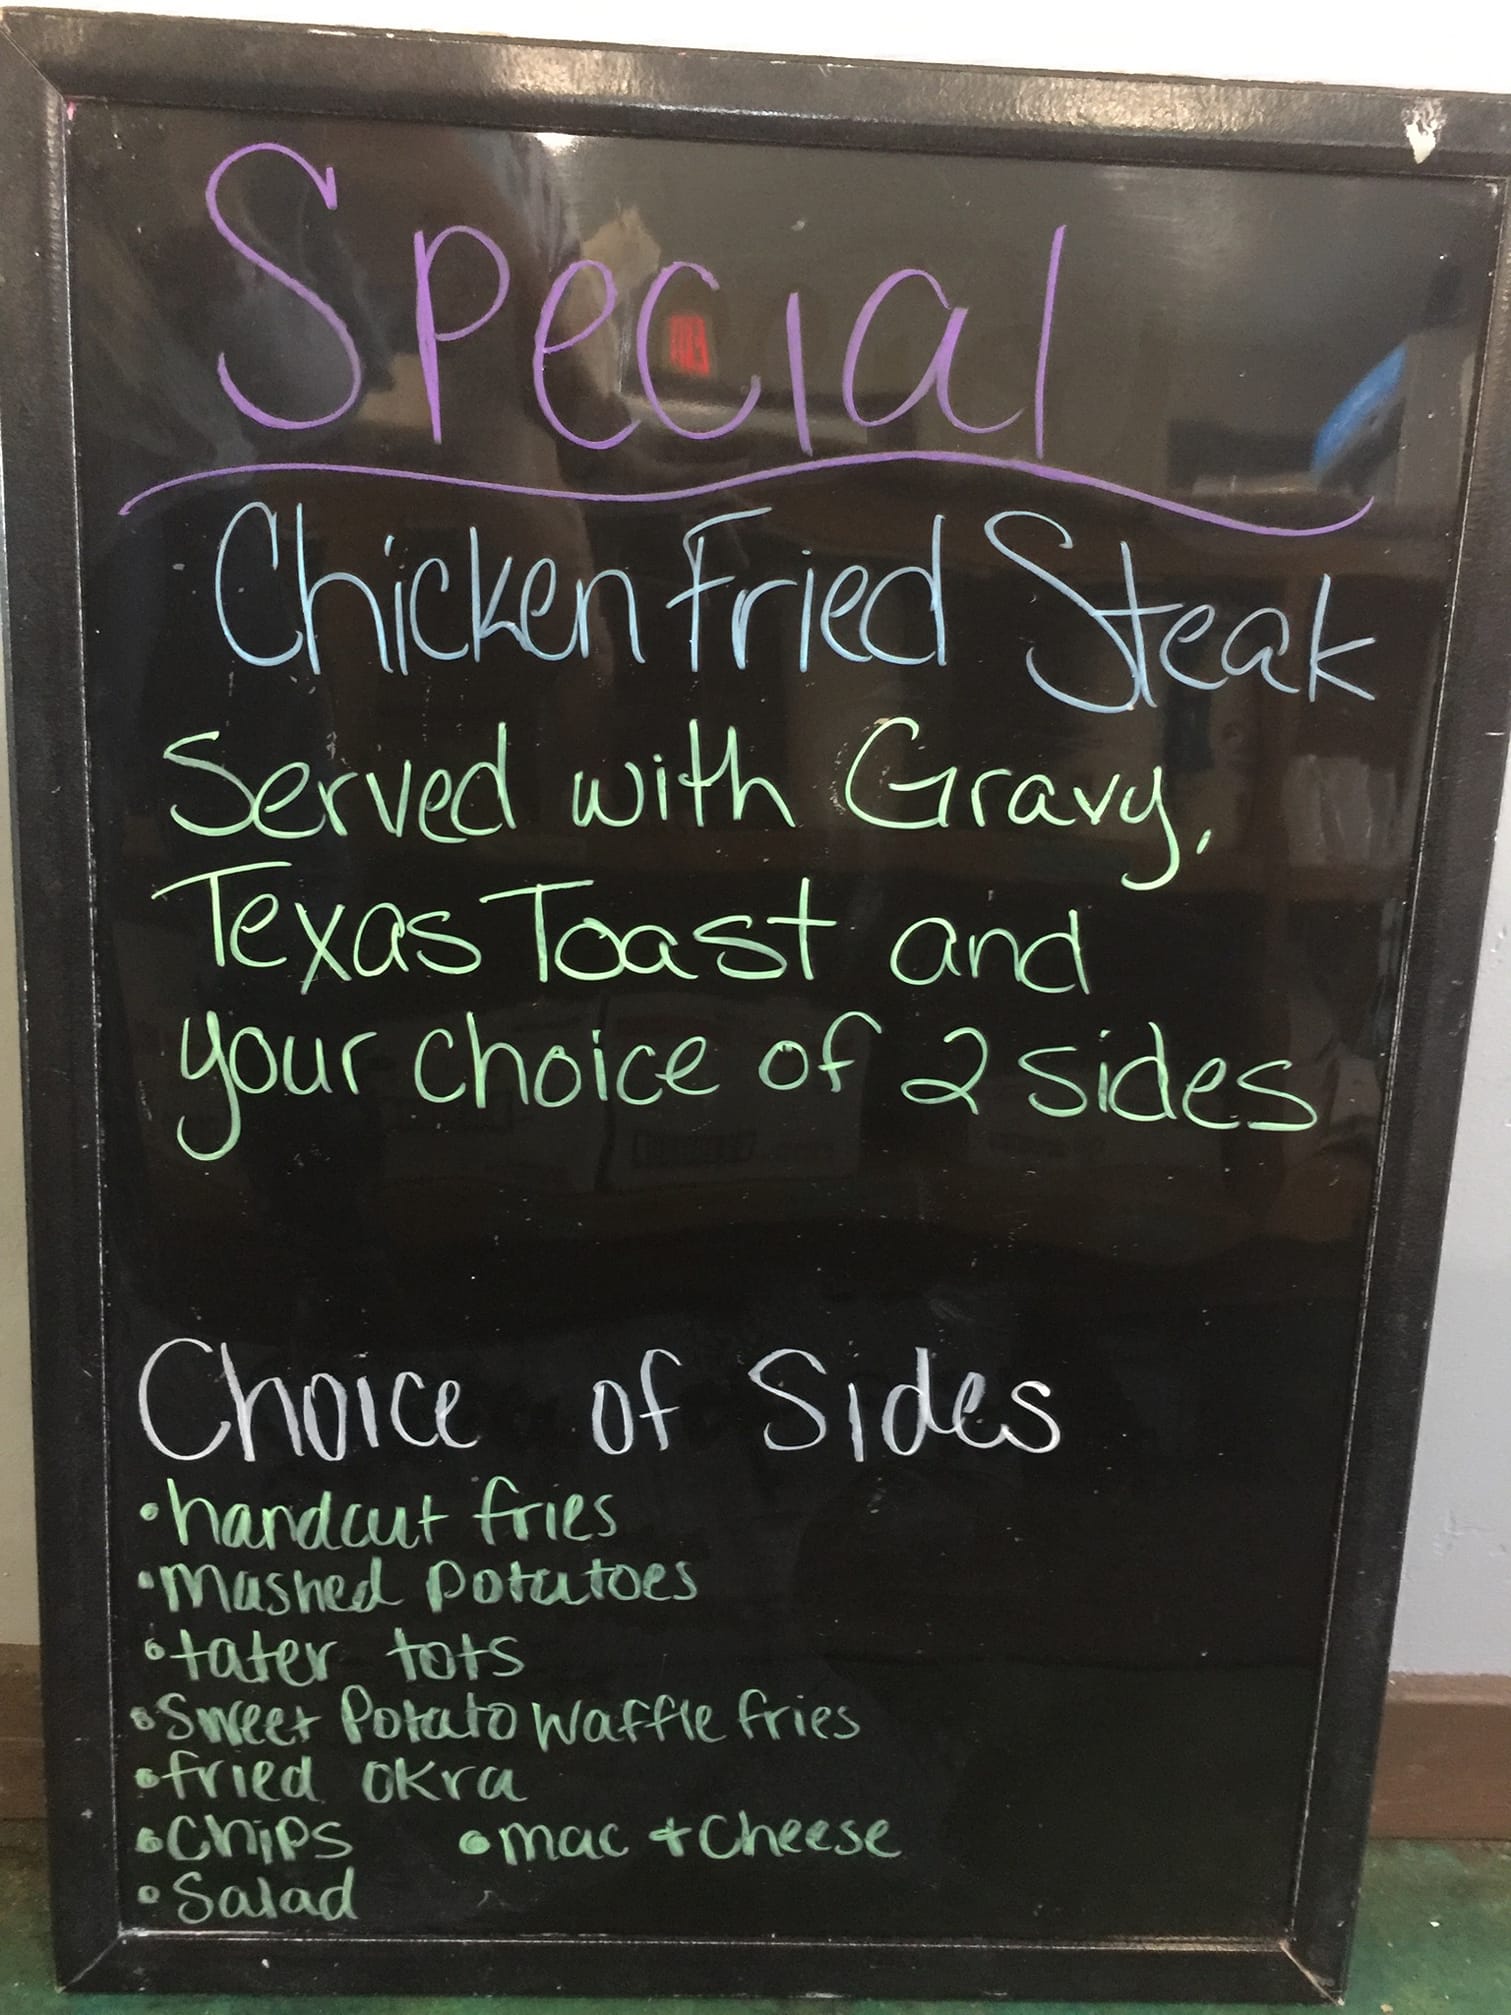 Special
Chicken Fried Steak
Served with Gravy,
Texas Toast and
your choice of 2 sides
Choice of Sides
• handcut fries
• Mashed potatoes
• tater tots
• Sweet Potato Waffle fries
• fried okra
• Chips • mac + Cheese
• Salad